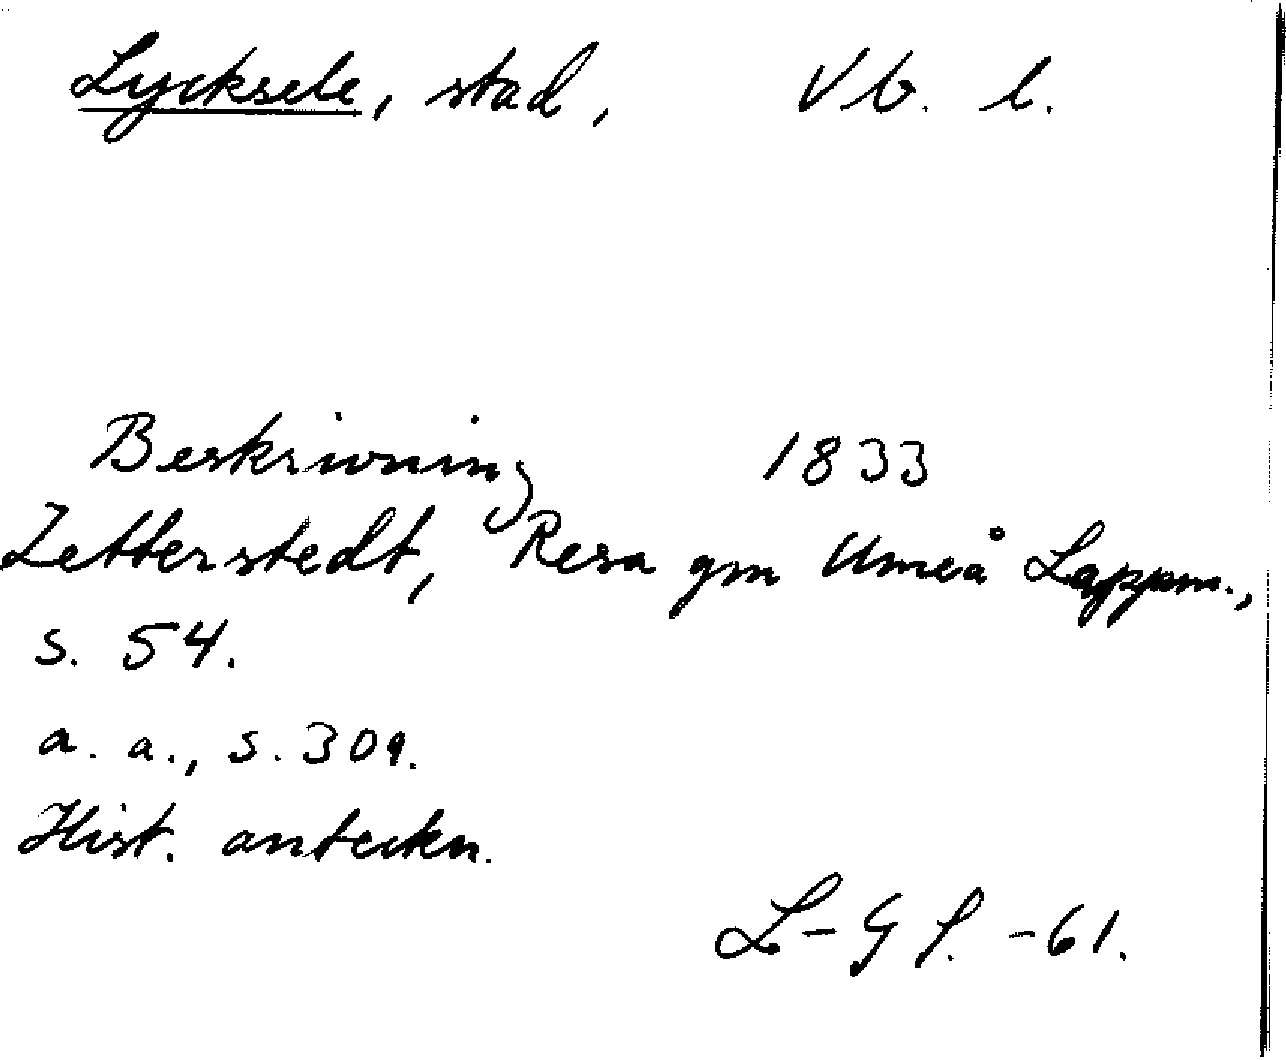 Lycksele, stad, Vb. l.
Beskrivning 1833
Zetterstedt, Resa gm Umeå Lappm.,
s. 54.
a. a., s. 309.
Hist. anteckn.
L-G S. -61.